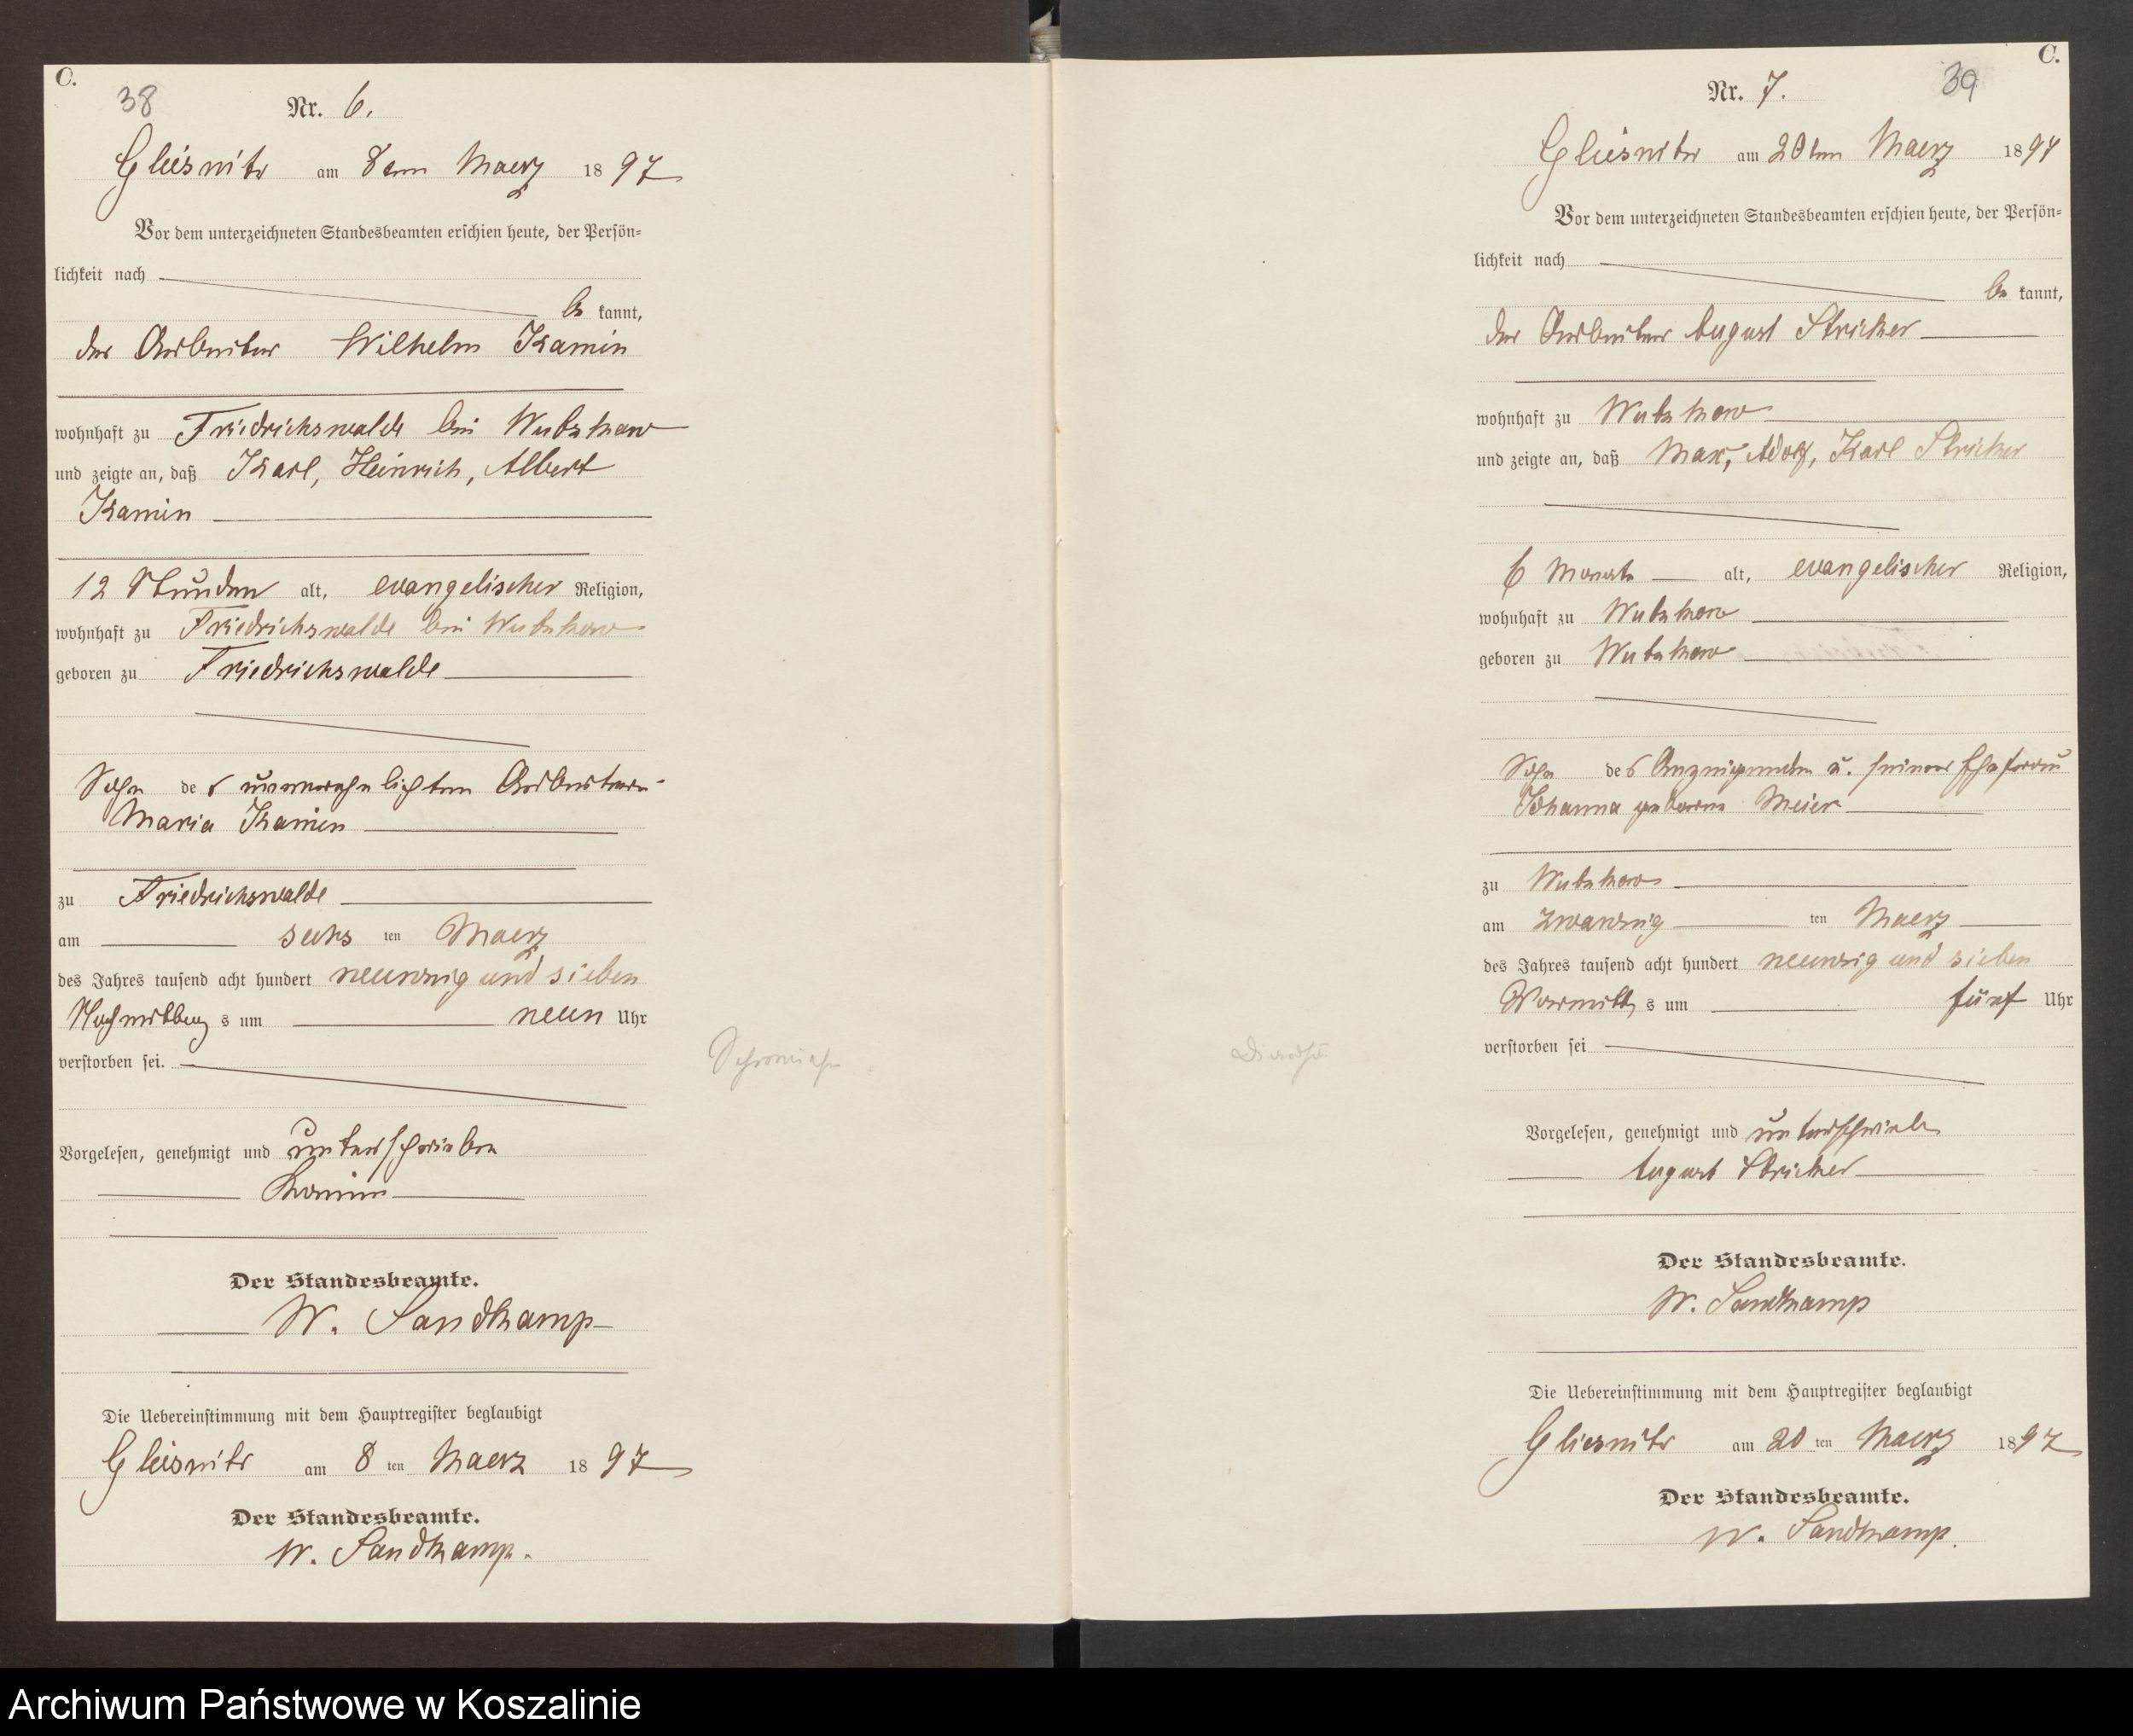 C.
38
Nr. 6.
Gliesnitz am 8ten Maerz 1897
Vor dem unterzeichneten Standesbeamten erschien heute, der Persön-
lichkeit nach
be kannt,
der Arbeiter Wilhelm Kamin
wohnhaft zu Friedrichswalde bei Wutzkow
und zeigte an, daß Karl, Heinrich, Albert
Kamin
12 Stunden alt, evangelischer Religion,
wohnhaft zu Friedrichswalde bei Wutzkow
geboren zu Friedrichswalde
Sohn der unverehelichten Arbeiterin
Maria Kamin
zu Friedrichswalde
am sechs ten Maerz
des Jahres tausend acht hundert neunzig und sieben
Nachmittags um neun Uhr
verstorben sei.
Vorgelesen, genehmigt und unterschrieben
Kamin
Der Standesbeamte.
W. Sandkamp
Die Uebereinstimmung mit dem Hauptregister beglaubigt
Gliesnitz am 8 ten Maerz 1897
Der Standesbeamte.
W. Sandkamp.
Schwäche
C.
39
Nr. 7.
Gliesnitz am 20ten Maerz 1897
Vor dem unterzeichneten Standesbeamten erschien heute, der Persön-
lichkeit nach
be kannt,
der Arbeiter August Stricker
wohnhaft zu Wutzkow
und zeigte an, daß Max, Adolf, Karl Stricker
6 Monate alt, evangelischer Religion,
wohnhaft zu Wutzkow
geboren zu Wutzkow
Sohn des Anzeigenden u. seiner Ehefrau
Johanna geborne Meier
zu Wutzkow
am zwanzig ten Maerz
des Jahres tausend acht hundert neunzig und sieben
Vormittags um fünf Uhr
verstorben sei
Vorgelesen, genehmigt und unterschrieben
August Stricker
Der Standesbeamte.
W. Sandkamp
Die Uebereinstimmung mit dem Hauptregister beglaubigt
Gliesnitz am 20 ten Maerz 1897
Der Standesbeamte.
W. Sandkamp.
Archiwum Państwowe w Koszalinie